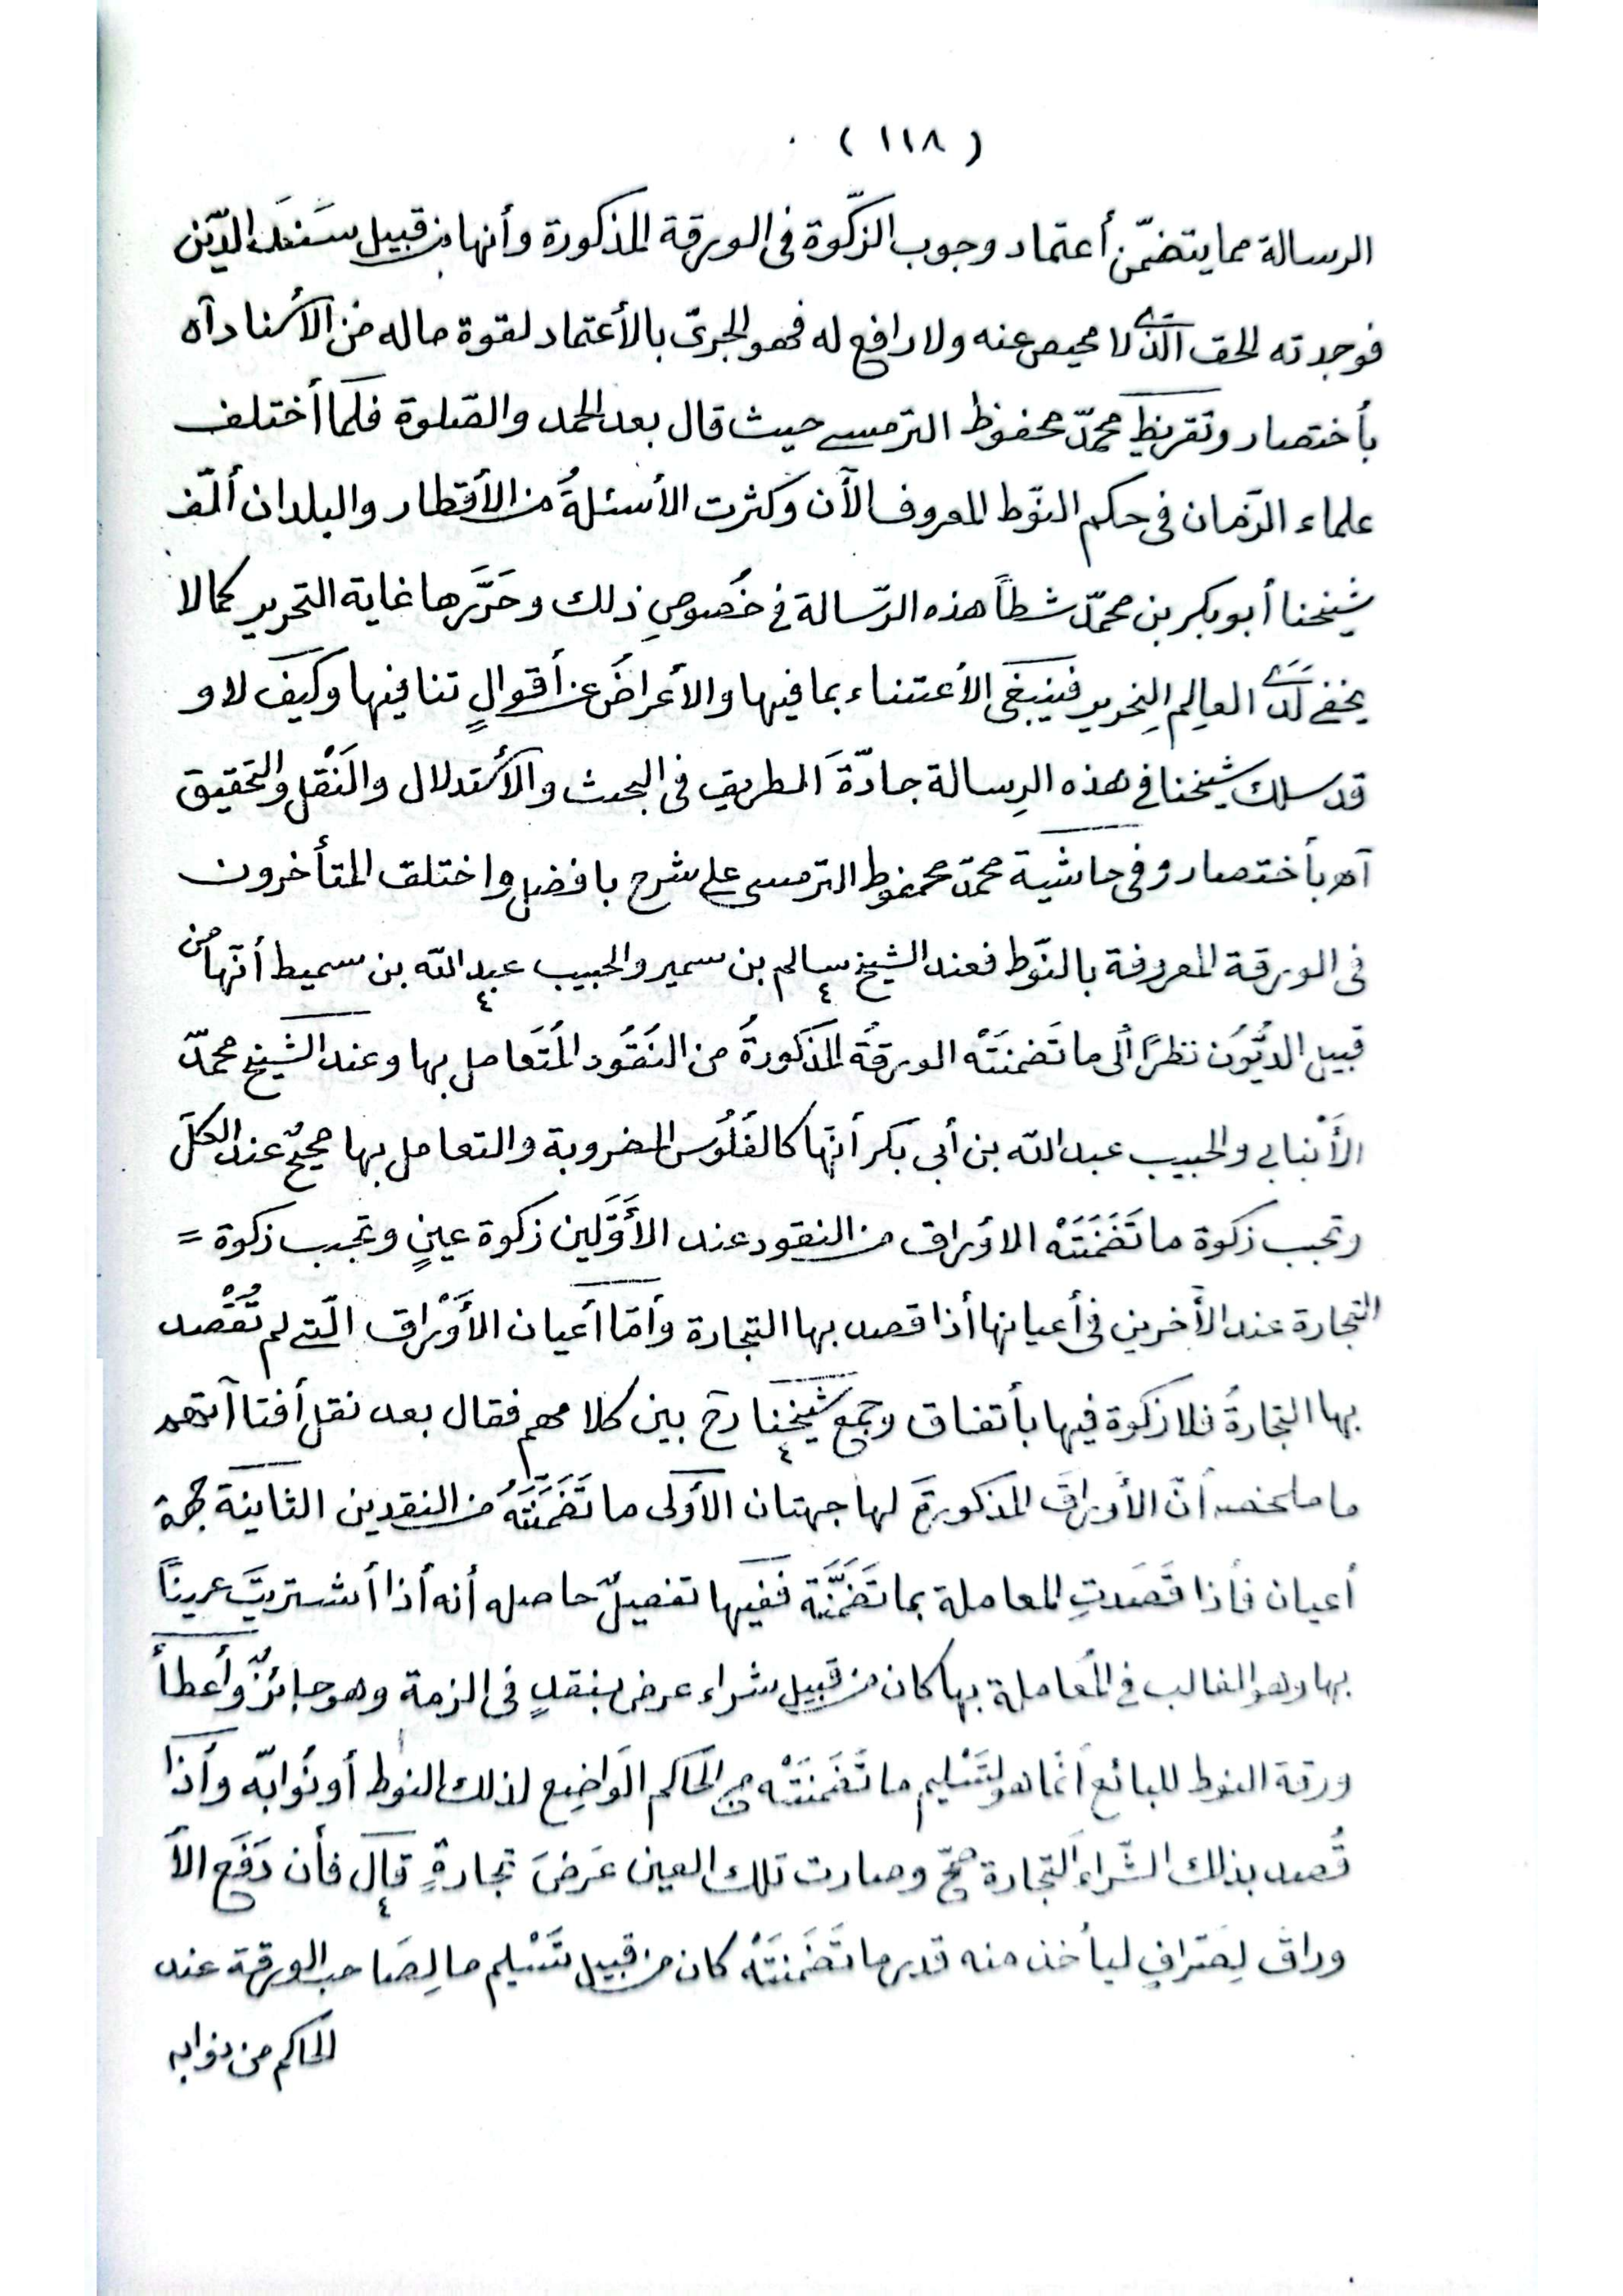 ( ١١٨ )
الرسالة مما يتضمّن أعتماد وجوب الزّكوة فى الورقة المذكورة وأنها من قبيل سَنَدَ الدّين
فوجدته الحق الّذى لا محيص عنه ولا رافع له فهو الجرىّ بالأعتماد لقوة ماله من الأسناد آه
بأختصار وتقريظ محمّد محفوظ الترمسى حيث قال بعد الحمد والصّلوة فلما أختلف
علماء الزّمان فى حكم النّوط المعروف الآن وكثرت الأسئلةُ من الأقطار والبلدان ألّف
شيخنا أبو بكر بن محمّد شطاً هذه الرّسالة فى خُصوصِ ذلك وحَرَّرها غاية التحرير كما لا
يخفى لَدَى العالِم النِحرير فينبغى الأعتناء بما فيها والأعراضُ عن أقوالٍ تنافيها وكيف لا و
قد سلك شيخنا فى هذه الرِسالة جادّةَ الطريق فى البحث والأستدلال والنَقْل والتحقيق
آه بأختصار وفى حاشية محمّد محفوظ الترمسى على شرح بافضل واختلف المتأخرون
فى الورقة المعروفة بالنّوط فعند الشيخ سالم بن سمير والحبيب عبد الله بن سميط أنّها من
قبيل الديُّوُن نظرًا ألى ما تَضمنَتْه الورقةُ المذكورةُ من النُقُود المُتَعامل بها وعند الشّيخ محمّد
الأَنْبابى والحبيب عبد الله بن أبى بكر أنّها كالفُلُوس المضروبة والتعامل بها صحيحٌ عند الكلّ
وتجب زكوة ما تَضَمَنَتْه الاوراق من النقود عند الأَوَّلَين زكوة عينٍ وتجب زكوة =
التجارة عند الأخرين فى أعيانها أذا قصد بها التجارة وأمّا أعيان الأَوْراق الّتى لم تُقْصَد
بها التجارةُ فلا زكوة فيها بأتفاق وجمع شَيخنا رح بين كلامهم فقال بعد نقل أفتاآتهم
ما ملخصه أنّ الأوراقَ المذكورةَ لها جهتان الأولى ما تَضَمَّنَتْهُ من النقدين الثاينة جهة
أعيان فأذا قَصَدتِ المعاملة بما تَضَمَّنَتْه ففيها تفصيلٌ حاصله أنه أذا أشتريتَ عريناً
بها وهو الغالب فى المُعاملة بها كان من قبيل شراء عرض بنقدٍ فى الزمة وهو جائزٌ وأعطأ
ورقة النوط للبائع أنّما هو لتَسْليم ما تَضَمنَتْه من الحَاكم الوَاضِع لذلك النوط أو نُوابّه وأذا
قُصد بذلك الشّراء التجارة صحّ وصارت تلك العين عَرضَ تجارةٍ قال فأن دَفَع الأ
وراق لِصَرافٍ ليأخذ منه قدر ما تَضَمنَتْهُ كان من قبيل تَسْليم ما لِصَاحب الورقة عند
الحاكم من نوابه